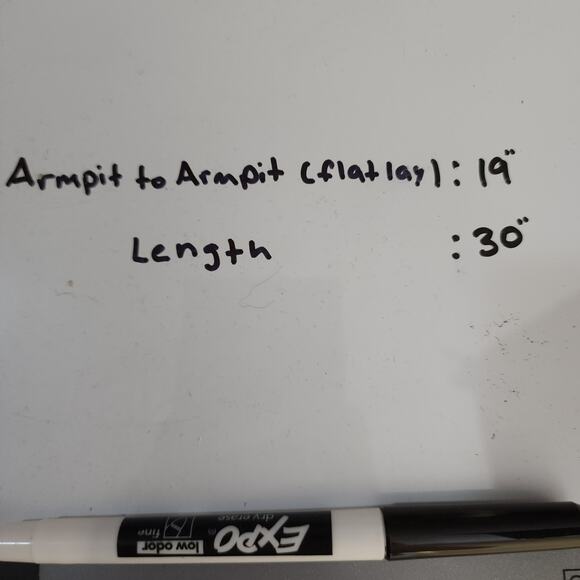 Armpit to Armpit (flat lay) : 19"
Length : 30"
EXPO
®
dry erase
low odor
fine